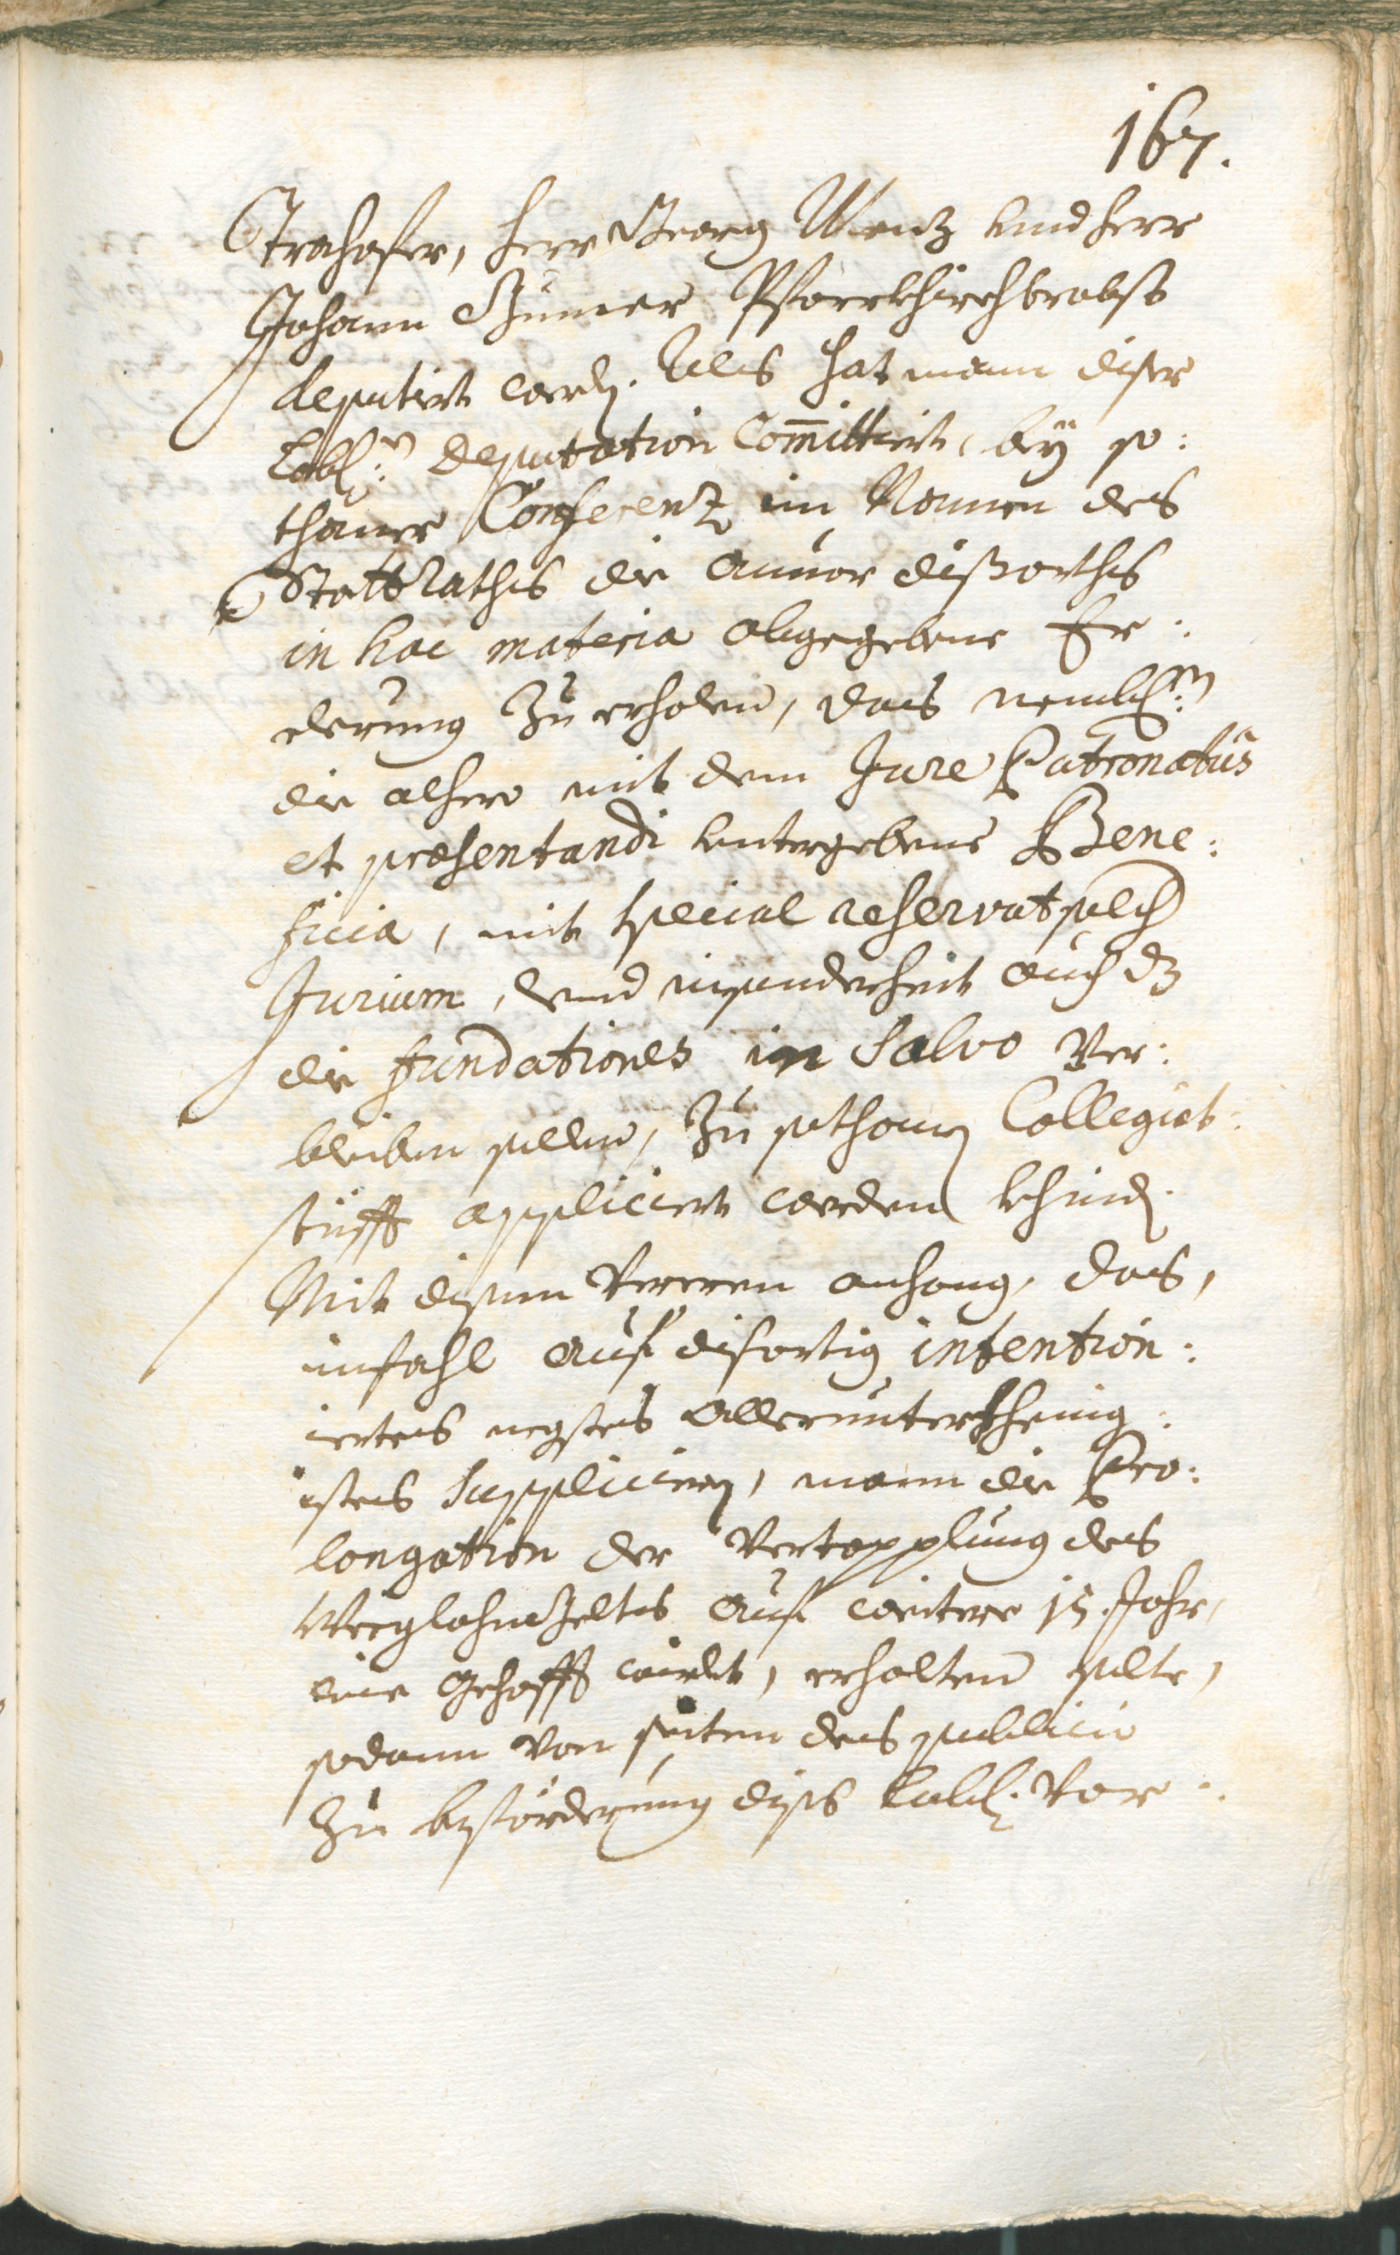 167.
Strahofer, herr Georg Wentz und herr
Johann Gumer Pfarrkhirchbrobst
deputiert werdn. Als hat mann diser
Lobl: Deputation Com̄ittiert, bey so:
thaner Conferenz im Namen des
StattRathes die anuor dißorthes
in hac materia abgegebene Er:
clerung zu erholen, das nemblich
die alhero mit dem Jure Patronatus
et præsentandi untergebene Bene:
ficia, mit special reservat solch
Jurium, und insonderheit auch dz
die fundationes in Salvo ver:
bleiben sollen, zu sothann Collegiat:
stüfft appliciert werden khindn.
Mit disem verern anhang, das,
imfahl auf disortig intention:
iertes negstes allerunterthenig:
istes Suppliciern, mann die Pro:
longation der vertopplung des
Weglohngeltes auf weitere 15. Jahr,
wie gehofft wirdt, erhalten solte,
sodann von seiten des publici
zu beförderung dises Lobl. vor: